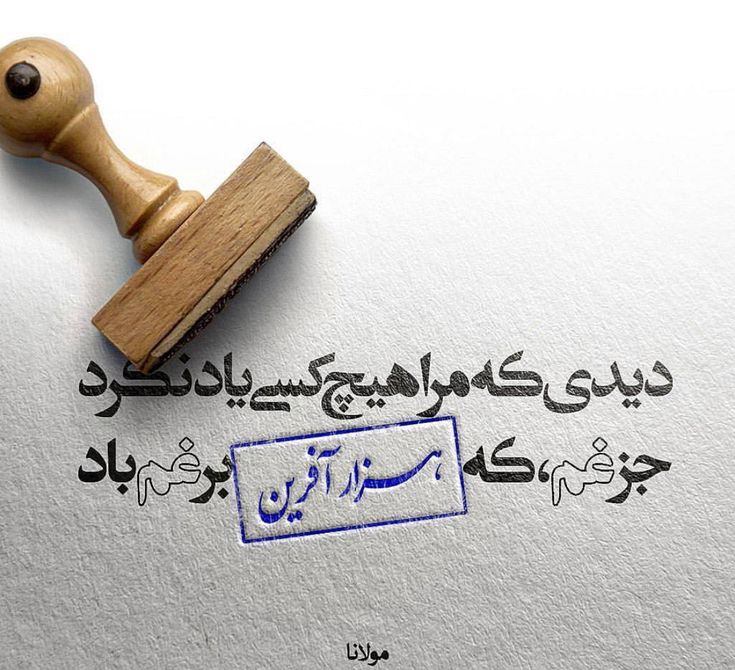 دیدی که مرا هیچ کسی یاد نکرد
جز غم، که هزار آفرین بر غم باد
مولانا